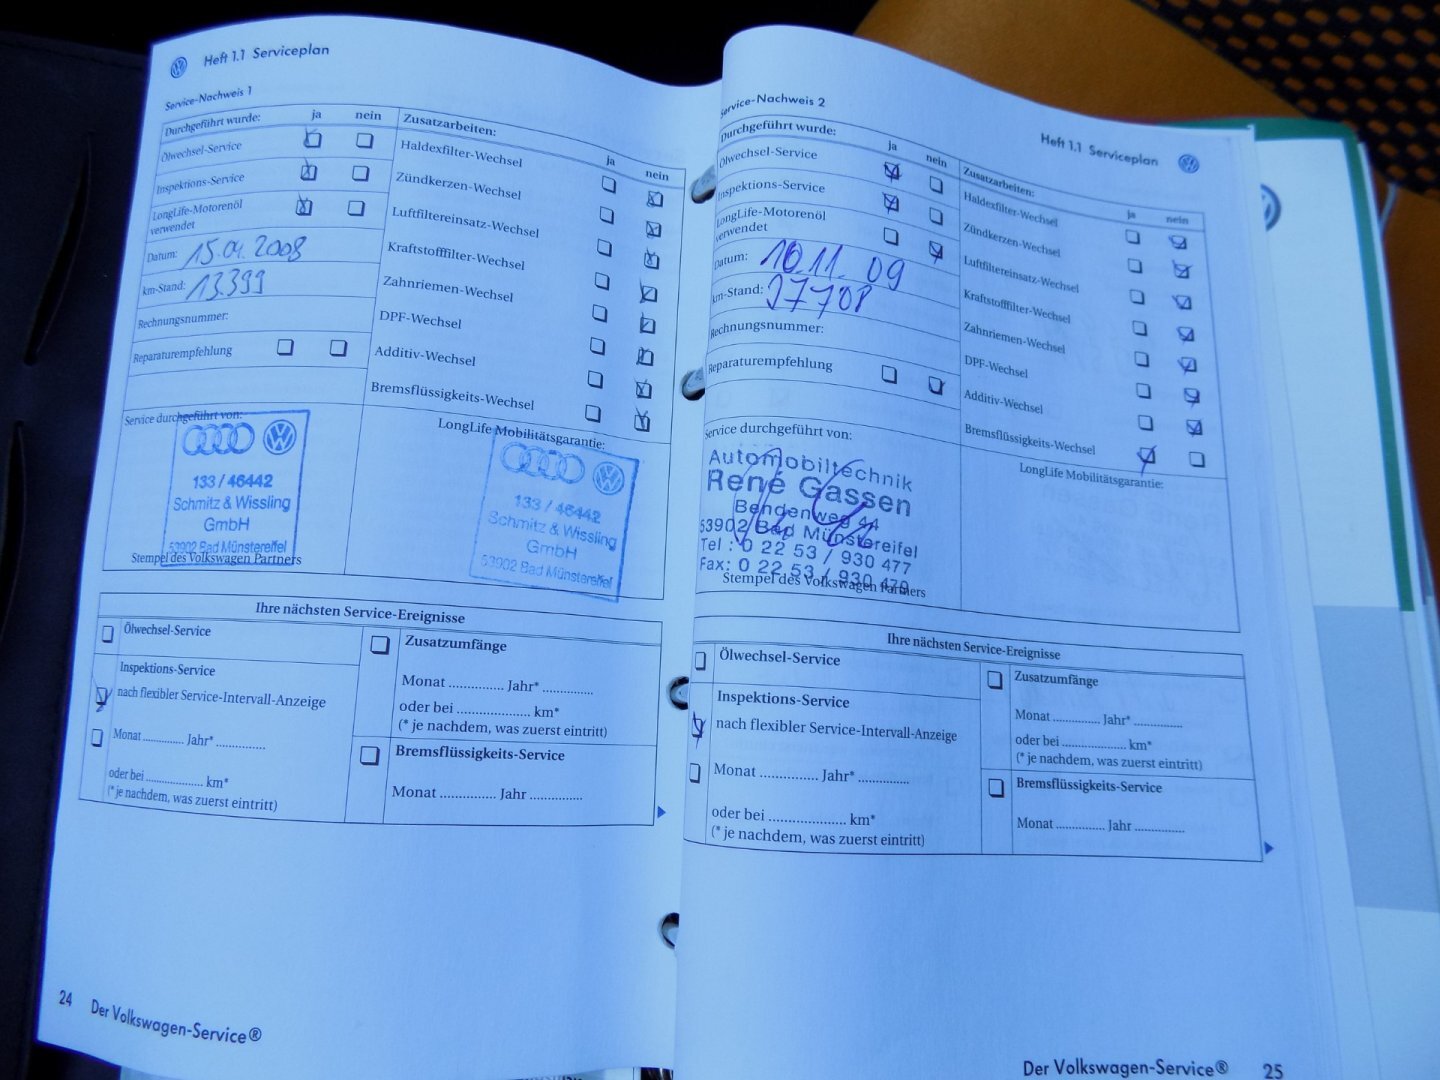 Heft 1.1 Serviceplan
Service-Nachweis 1
Durchgeführt wurde: ja nein
Ölwechsel-Service
Inspektions-Service
LongLife-Motorenöl
verwendet
Datum: 15.04.2008
km-Stand: 13.399
Rechnungsnummer:
Reparaturempfehlung
Zusatzarbeiten:
ja nein
Haldexfilter-Wechsel
Zündkerzen-Wechsel
Luftfiltereinsatz-Wechsel
Kraftstofffilter-Wechsel
Zahnriemen-Wechsel
DPF-Wechsel
Additiv-Wechsel
Bremsflüssigkeits-Wechsel
Service durchgeführt von:
133 / 46442
Schmitz & Wissling
GmbH
53902 Bad Münstereifel
Stempel des Volkswagen Partners
LongLife Mobilitätsgarantie:
133 / 46442
Schmitz & Wissling
GmbH
53902 Bad Münstereifel
Ihre nächsten Service-Ereignisse
Ölwechsel-Service
Inspektions-Service
nach flexibler Service-Intervall-Anzeige
Monat .............. Jahr* ................
oder bei .................... km*
(* je nachdem, was zuerst eintritt)
Zusatzumfänge
Monat .............. Jahr* ..............
oder bei .................... km*
(* je nachdem, was zuerst eintritt)
Bremsflüssigkeits-Service
Monat .............. Jahr ..............
24 Der Volkswagen-Service®
Heft 1.1 Serviceplan
Service-Nachweis 2
Durchgeführt wurde: ja nein
Ölwechsel-Service
Inspektions-Service
LongLife-Motorenöl
verwendet
Datum: 10.11.09
km-Stand: 27708
Rechnungsnummer:
Reparaturempfehlung
Zusatzarbeiten:
ja nein
Haldexfilter-Wechsel
Zündkerzen-Wechsel
Luftfiltereinsatz-Wechsel
Kraftstofffilter-Wechsel
Zahnriemen-Wechsel
DPF-Wechsel
Additiv-Wechsel
Bremsflüssigkeits-Wechsel
Service durchgeführt von:
Automobiltechnik
René Gassen
Bendenweg 44
53902 Bad Münstereifel
Tel : 0 22 53 / 930 477
Fax: 0 22 53 / 930 479
Stempel des Volkswagen Partners
LongLife Mobilitätsgarantie:
Ihre nächsten Service-Ereignisse
Ölwechsel-Service
Inspektions-Service
nach flexibler Service-Intervall-Anzeige
Monat .............. Jahr* ..............
oder bei .................... km*
(* je nachdem, was zuerst eintritt)
Zusatzumfänge
Monat .............. Jahr* ..............
oder bei .................... km*
(* je nachdem, was zuerst eintritt)
Bremsflüssigkeits-Service
Monat .............. Jahr ..............
Der Volkswagen-Service® 25